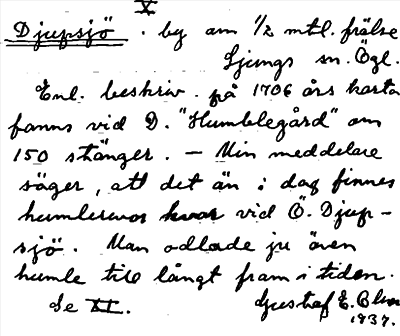 V
Djupsjö. by om 1/2 mtl. frälse
Ljungs sn. Ögl.
Enl. beskriv. på 1706 års karta
fanns vid D. "Humblegård" om
150 stänger. — Min meddelare
säger, att det än i dag finnes
humlerevor kvar vid Ö. Djup-
sjö. Man odlade ju även
humle till långt fram i tiden.
Se XI. Gustaf E. Olsn
1937.